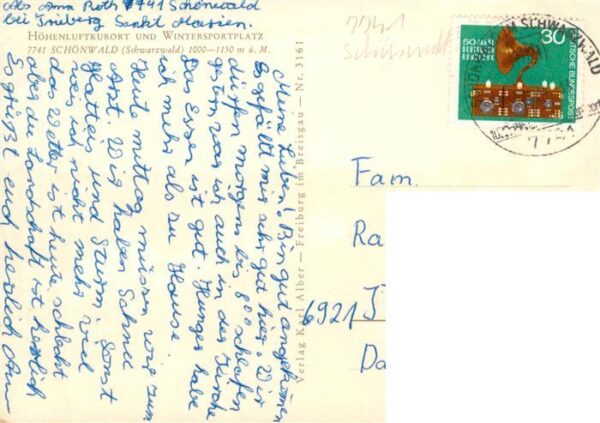 Abs Anna Roth 7741 Schönwald
bei Triberg Sankt Marien.
HÖHENLUFTKURORT UND WINTERSPORTPLATZ
7741 SCHÖNWALD (Schwarzwald) 1000—1150 m ü. M.
Meine Lieben! Bin gut angekommen
Es gefällt mir sehr gut hier. Wir
dürfen morgens bis 8 00 schlafen
gestern war ich auch in der Kirche
Das Essen ist gut. Hunger habe
ich mehr als zu Hause.
Heute mittag müssen wir zum
Arzt. Wir haben Schnee
Glatteis und Sturm. Sonst
weis ich nicht mehr viel
das Wetter ist heute schlecht
aber die Landschaft ist herrlich
Es grüßt euch herzlich
Verlag Karl Alber — Freiburg im Breisgau — Nr. 3161
7741
50 JAHRE
DEUTSCHER
RUNDFUNK
30
DEUTSCHE BUNDESPOST
SCHWARZWALD
Fam.
Ra
6921
Da